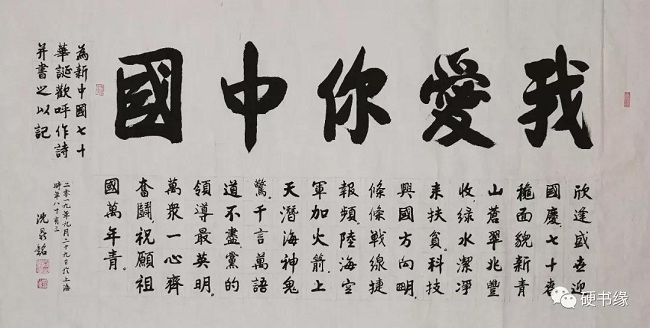 我愛你中國
欣逢盛世迎
國慶七十春
穐面貌新青
山蒼翠兆豐
收綠水潔凈
来扶貧科技
興國方向明
條條戰線捷
報頻陸海空
軍加火箭上
天潛海神鬼
驚千言萬語
道不盡黨的
領導最英明
萬衆一心齊
奮鬪祝願祖
國萬年青
為新中國七十
華誕歡呼作詩
并書之以記
二零一九年九月二十九日於上海
時年八十有三
沈 銘
硬书缘